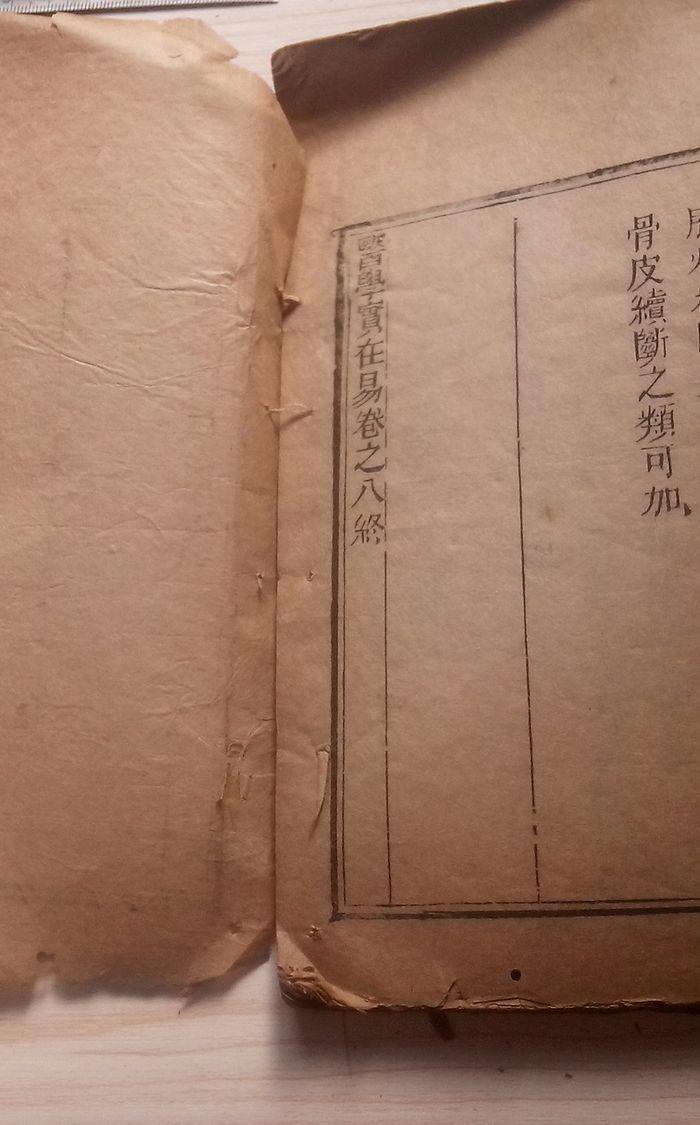 骨皮續斷之類可加
醫學實在易卷之八終